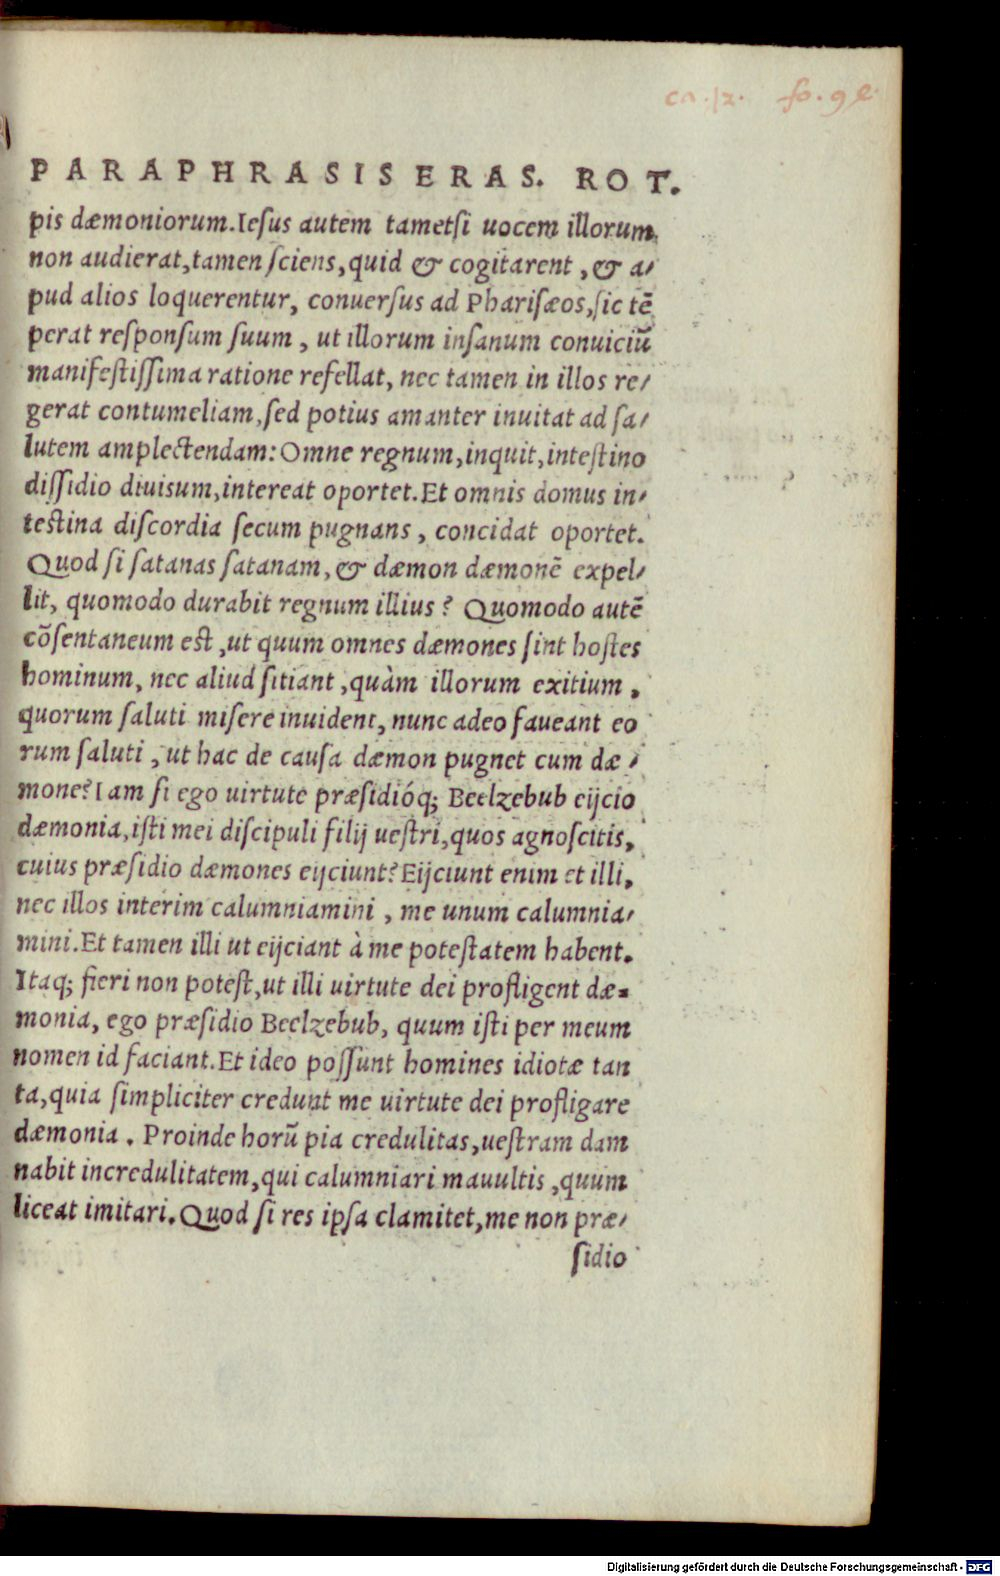 ca. 12. fo. 9
PARAPHRASIS ERAS. ROT.
pis dæmoniorum. Iesus autem tametsi uocem illorum
non audierat, tamen sciens, quid & cogitarent, & a/
pud alios loquerentur, conuersus ad Pharisæos, sic tē
perat responsum suum, ut illorum insanum conuiciū
manifestissima ratione refellat, nec tamen in illos re/
gerat contumeliam, sed potius amanter inuitat ad sa/
lutem amplectendam: Omne regnum, inquit, intestino
dissidio diuisum, intereat oportet. Et omnis domus in/
testina discordia secum pugnans, concidat oportet.
Quod si satanas satanam, & dæmon dæmonē expel/
lit, quomodo durabit regnum illius? Quomodo autē
cōsentaneum est, ut quum omnes dæmones sint hostes
hominum, nec aliud sitiant, quàm illorum exitium,
quorum saluti misere inuident, nunc adeo faueant eo
rum saluti, ut hac de causa dæmon pugnet cum dæ/
mone? Iam si ego uirtute præsidióq; Beelzebub eijcio
dæmonia, isti mei discipuli filij uestri, quos agnoscitis,
cuius præsidio dæmones eijciunt? Eijciunt enim et illi,
nec illos interim calumniamini, me unum calumnia/
mini. Et tamen illi ut eijciant à me potestatem habent.
Itaq; fieri non potest, ut illi uirtute dei profligent dæ=
monia, ego præsidio Beelzebub, quum isti per meum
nomen id faciant. Et ideo possunt homines idiotæ tan
ta, quia simpliciter credunt me uirtute dei profligare
dæmonia. Proinde horū pia credulitas, uestram dam
nabit incredulitatem, qui calumniari mauultis, quum
liceat imitari. Quod si res ipsa clamitet, me non præ/
sidio
Digitalisierung gefördert durch die Deutsche Forschungsgemeinschaft - DFG